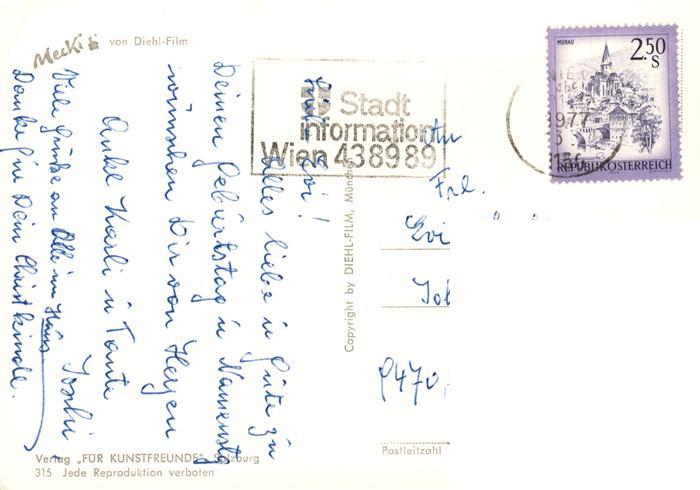 Mecki von Diehl-Film
Liebe Evi!
Alles liebe u Gute zu
Deinen Geburtstag u Namenstg
wünschen Dir von Herzen
Onkel Karli u Tante
Joschi
Viele Grüße an Alle im Haus
Danke für Dein Christkindl.
Stadt
information
Wien 43 89 89
1977
MURAU
2.50
S
REPUBLIK ÖSTERREICH
An
Frl.
Evi
9470,
Postleitzahl
Copyright by DIEHL-FILM, München
Verlag „FÜR KUNSTFREUNDE", Salzburg
315 Jede Reproduktion verboten